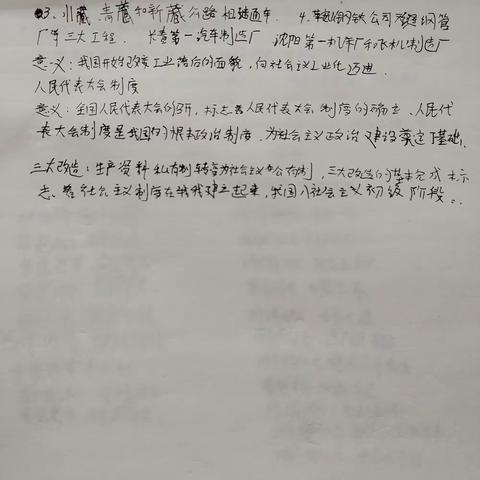 3、川藏 青藏和新藏公路相继通车. 4. 鞍山钢铁公司无缝钢管
厂等三大工程. 长春第一汽车制造厂 沈阳第一机床厂和飞机制造厂
意义：我国开始改变工业落后的面貌，向社会主义工业化迈进.
人民代表大会制度
意义：全国人民代表大会的召开，标志着人民代表大会制度的确立、人民代
表大会制度是我国的根本政治制度、为社会主义政治建设奠定了基础.
三大改造：生产资料私有制转变为社会主义公有制，三大改造的基本完成标
志着社会主义制度在我国建立起来，我国入社会主义初级阶段。